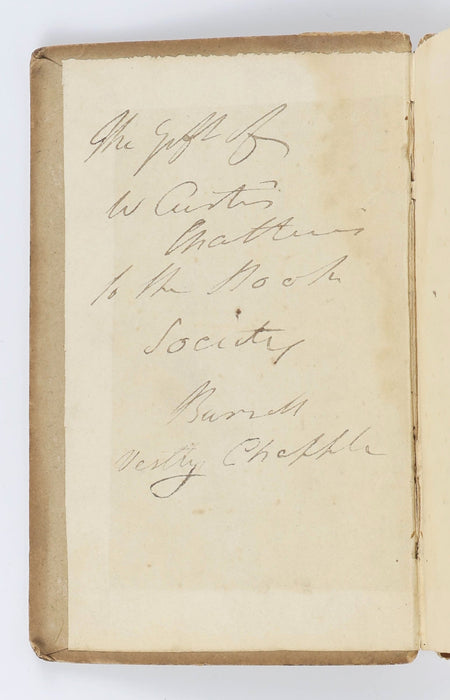 The Gift of
W Curtis
Chatteris
to the Book
Society
Burrell
Vestry Chapple